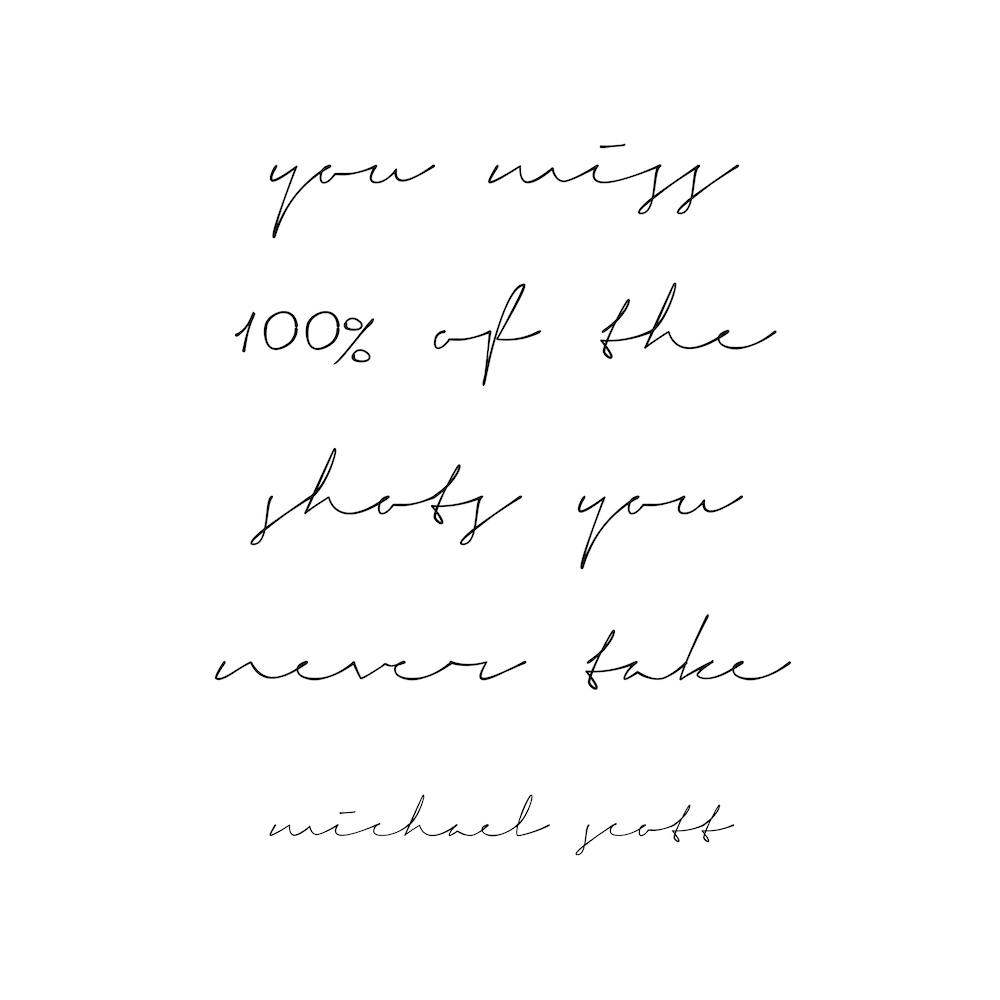 you miss
100% of the
shots you
never take
michael scott